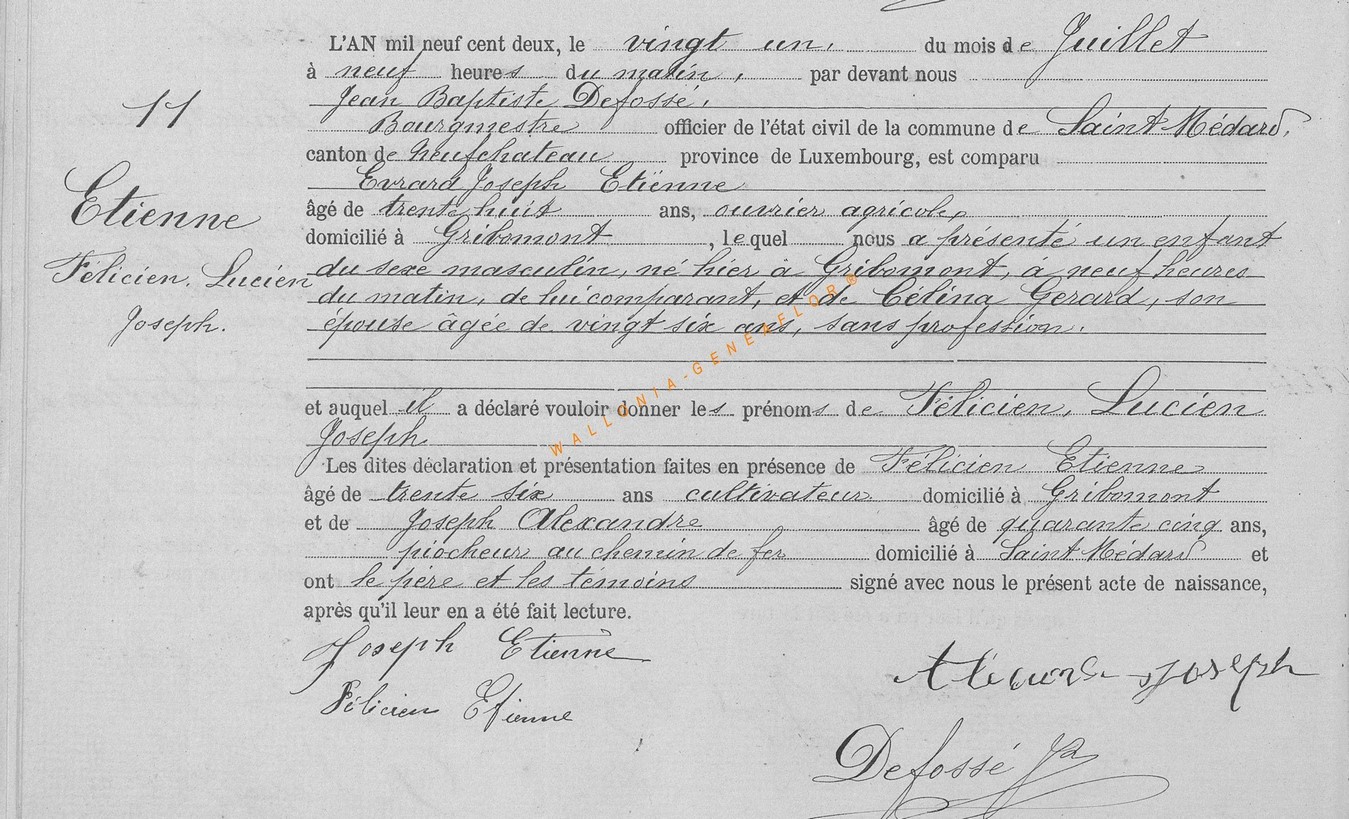 11
Etienne
Félicien, Lucien
Joseph.
L'AN mil neuf cent deux, le vingt un, du mois de Juillet
à neuf heures du matin, par devant nous
Jean Baptiste Defossé,
Bourgmestre officier de l'état civil de la commune de Saint Médard,
canton de Neufchateau province de Luxembourg, est comparu
Evrard Joseph Etienne
âgé de trente huit ans, ouvrier agricole,
domicilié à Gribomont, lequel nous a présenté un enfant
du sexe masculin, né hier à Gribomont, à neuf heures
du matin, de lui comparant, et de Célina Gerard, son
épouse âgée de vingt six ans, sans profession.
et auquel il a déclaré vouloir donner les prénoms de Félicien, Lucien
Joseph.
Les dites déclaration et présentation faites en présence de Félicien Etienne
âgé de trente six ans cultivateur domicilié à Gribomont
et de Joseph Alexandre âgé de quarante cinq ans,
piocheur au chemin de fer domicilié à Saint Médard et
ont le père et les témoins signé avec nous le présent acte de naissance,
après qu'il leur en a été fait lecture.
Joseph Etienne
Joseph
Félicien Etienne
Defossé
WALLONIA-GENEFLOR®